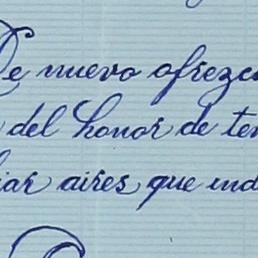 De nuevo ofrezc
del honor de ten
iar aires que ind